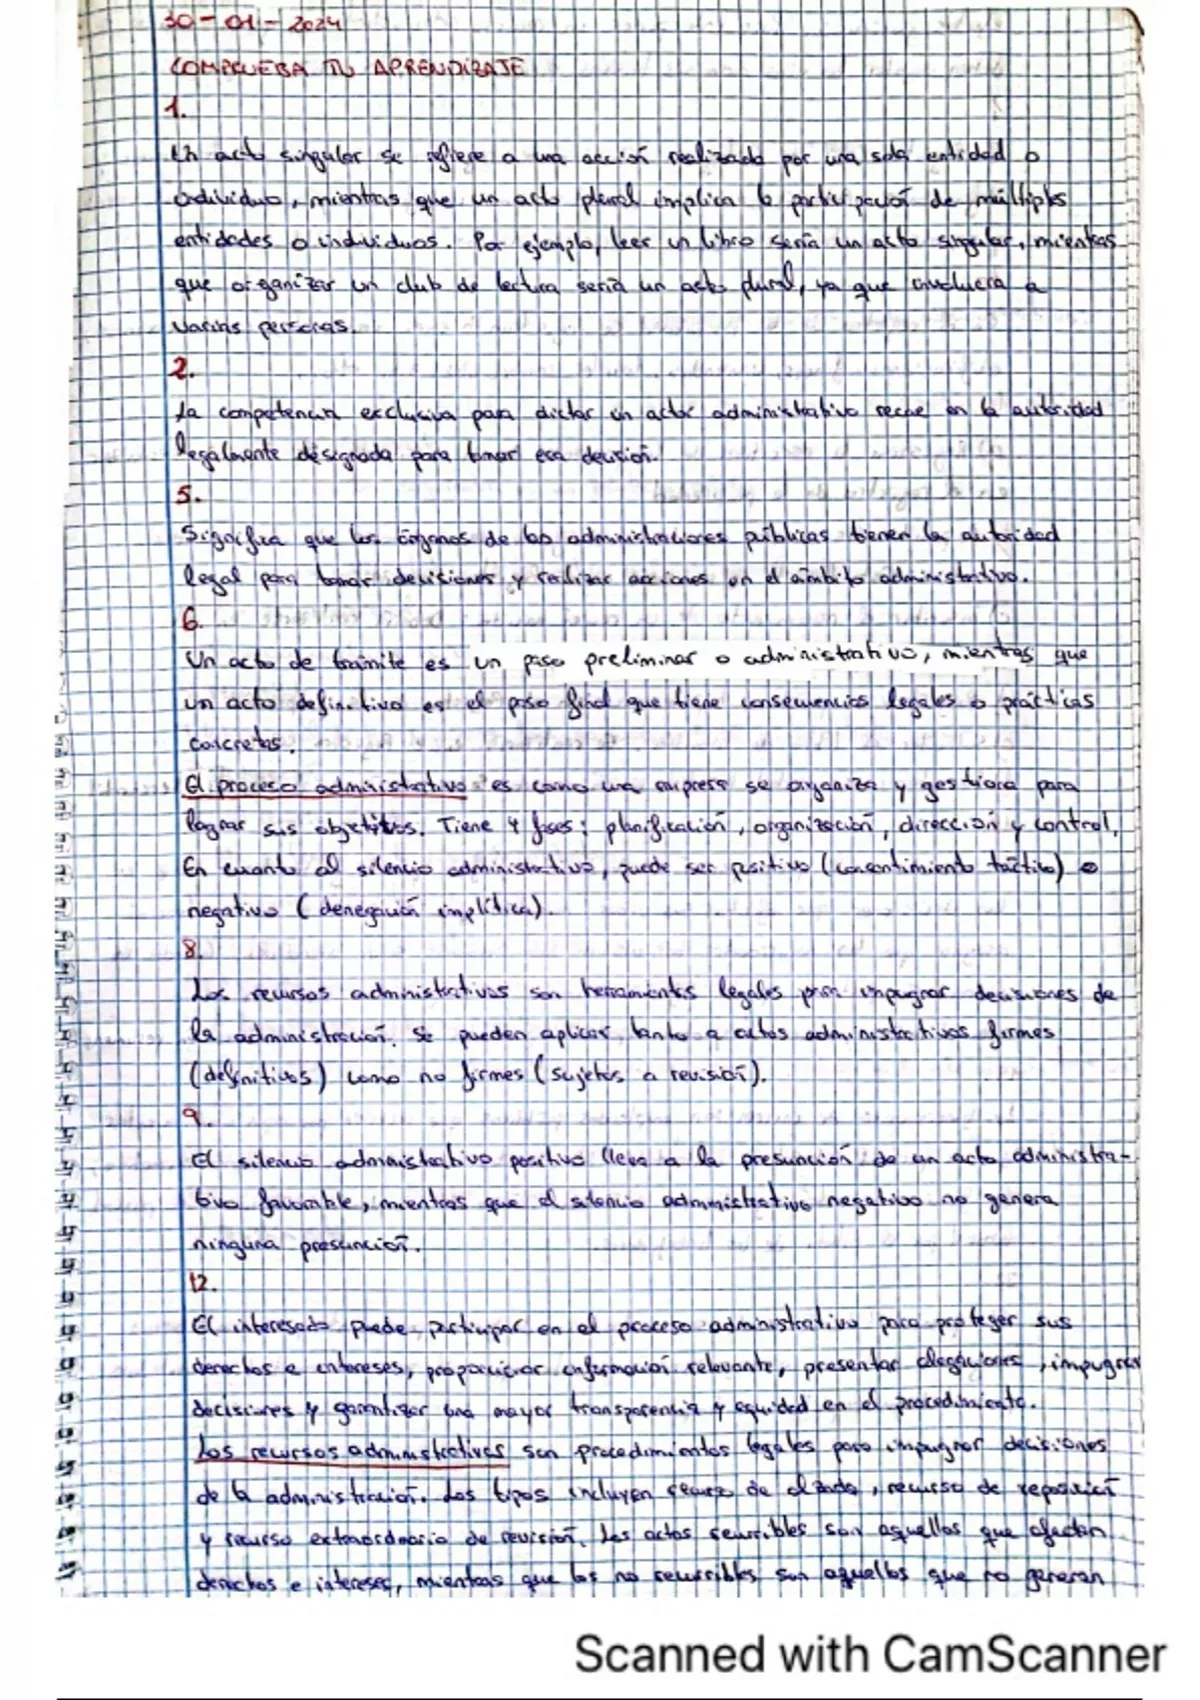 30-01-2024
COMPRUEBA TU APRENDIZAJE
1.
Un acto singular se refiere a una acción realizada por una sola entidad o
individuo, mientras que un acto plural implica la participación de múltiples
entidades o individuos. Por ejemplo, leer un libro sería un acto singular, mientras
que organizar un club de lectura sería un acto plural, ya que involucra a
varias personas.
2.
La competencia exclusiva para dictar un acto administrativo recae en la autoridad
legalmente designada para tomar esa decisión.
5.
Significa que los órganos de las administraciones públicas tienen la autoridad
legal para tomar decisiones y realizar acciones en el ámbito administrativo.
6.
Un acto de trámite es un paso preliminar o administrativo, mientras que
un acto definitivo es el paso final que tiene consecuencias legales o prácticas
concretas.
El proceso administrativo es como una empresa se organiza y gestiona para
lograr sus objetivos. Tiene 4 fases: planificación, organización, dirección y control.
En cuanto al silencio administrativo, puede ser positivo (consentimiento táctito) o
negativo (denegación implítica).
8.
Los recursos administrativos son herramientas legales para impugnar decisiones de
la administración. Se pueden aplicar tanto a actos administrativos firmes
(definitivos) como no firmes (sujetos a revisión).
9.
El silencio administrativo positivo lleva a la presunción de un acto administra-
tivo favorable, mientras que el silencio administrativo negativo no genera
ninguna presunción.
12.
El interesado puede participar en el proceso administrativo para proteger sus
derechos e intereses, proporcionar información relevante, presentar alegaciones, impugnar
decisiones y garantizar una mayor transparencia y equidad en el procedimiento.
Los recursos administrativos son procedimientos legales para impugnar decisiones
de la administración. Los tipos incluyen recurso de alzada, recurso de reposición
y recurso extraordinario de revisión. Los actos recurribles son aquellos que afectan
derechos e intereses, mientras que los no recurribles son aquellos que no generan
Scanned with CamScanner